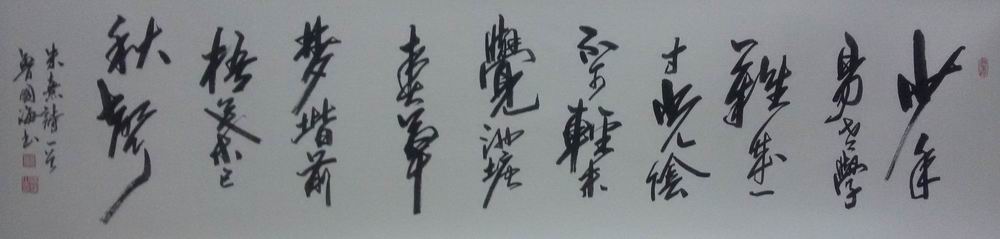 少年
易老學
難成一
寸光陰
不可輕未
覺池塘
春草
梦堦前
梧葉已
秋聲
朱熹詩一首
國海书